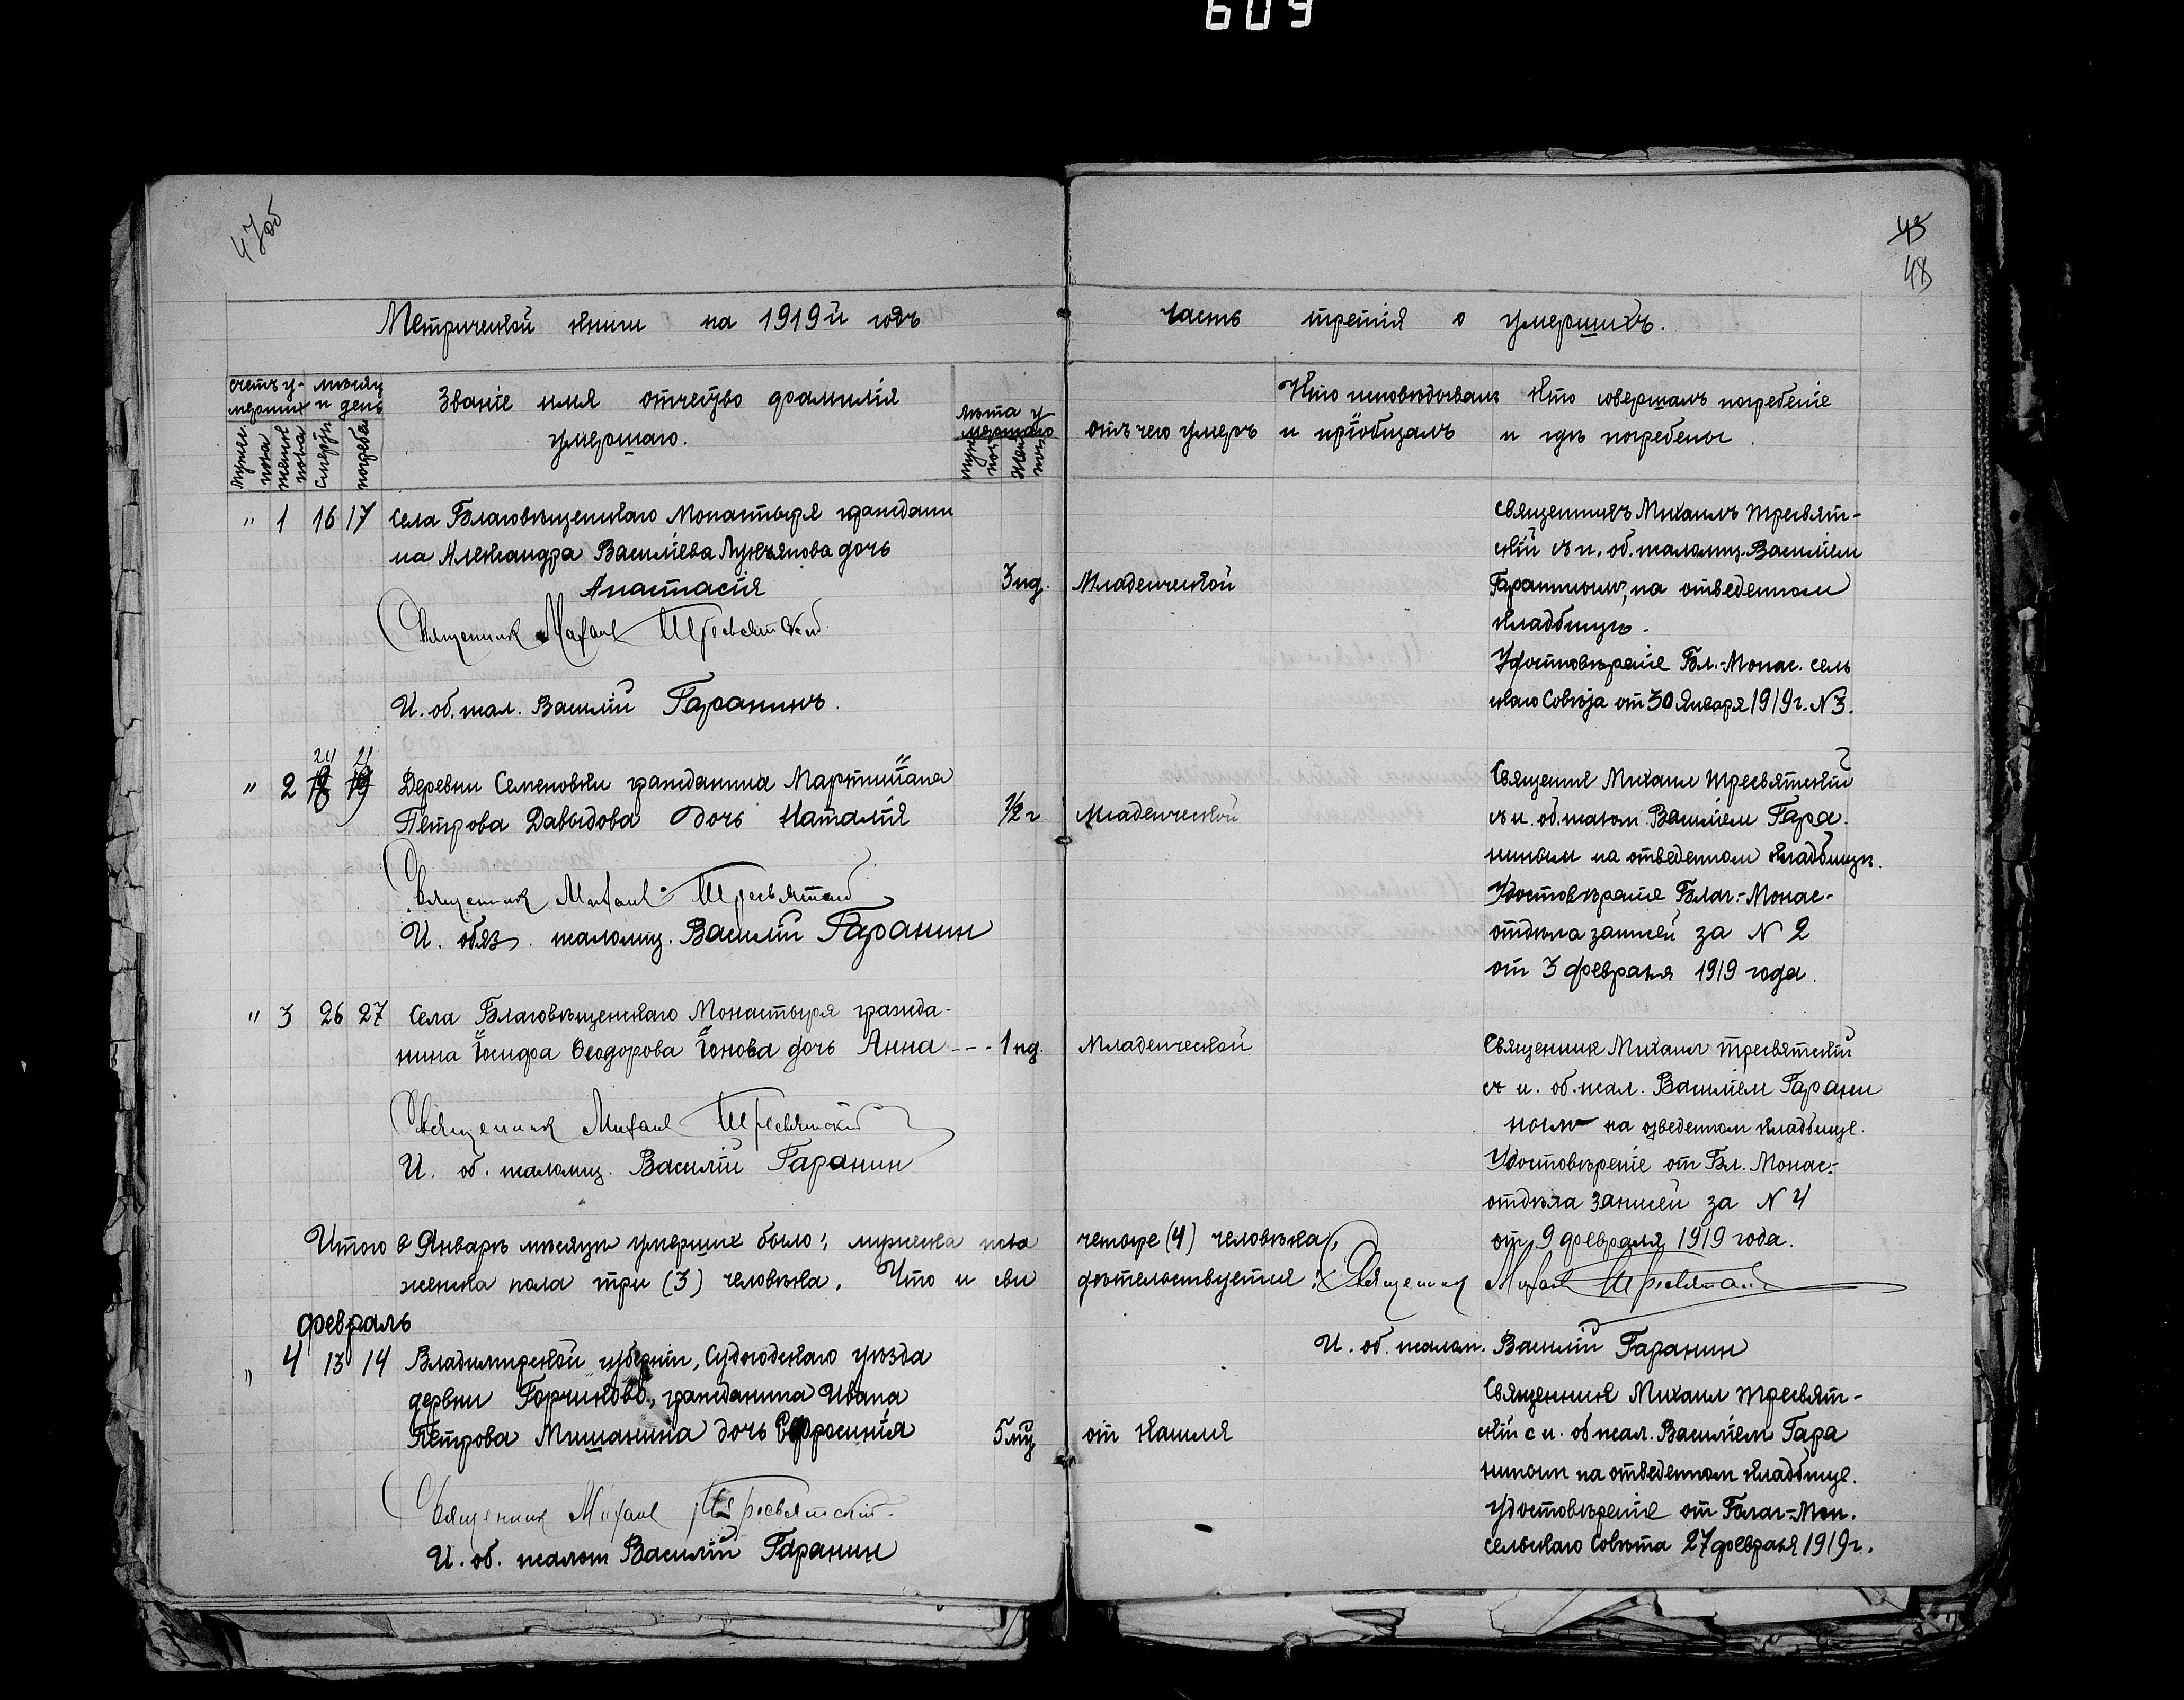 609
47об
45
48
Метрической книги на 1919й годъ
часть третія о умершихъ.
счетъ у-
мерших
мѣсяц
и день
Мужес.
пола
женск
пола
Смерти
погреб.
Званіе имя отчество фамилія
умершаго.
Лѣта у
мершаго
муж
пол
жен
пол
отъ чего умеръ
Кто исповѣдывалъ
и пріобщалъ
Кто совершалъ погребеніе
и гдѣ погребены.
" 1 16 17 села Благовѣщенскаго Монастыря граждани
на Александра Василіева Лукьянова дочь
Анастасія 3 нд. Младенческой
Священник Михаил Тресвятский
И. об. псал. Василій Гаранинъ.
Священникъ Михаилъ Тресвят-
скій съ и. об. псаломщ. Василіем
Гаранином, на отведенном
кладбищѣ.
Удостовѣреніе Бл.-Монас. сель
скаго Совѣта от 30 Января 1919 г. N 3.
20 21
" 2 18 19 Деревни Семеновки гражданина Мартиніана
Петрова Давыдова дочь Наталія 1/2 г Младенческой
Священник Михаил Тресвятский
И. обяз. псаломщ. Василій Гаранин
Священик Михаил Тресвятскій
съ и. об. псалом. Василіем Гара
ниным на отведенном кладбищѣ.
Удостовѣреніе Благ.-Монас.
отдѣла записей за N 2
от 3 февраля 1919 года.
" 3 26 27 села Благовѣщенскаго Монастыря гражда-
нина Іосифа Ѳеодорова Іонова дочь Анна --- 1 нд. Младенческой
Священник Михаил Тресвятский
И. об. псаломщ. Василій Гаранин
Священник Михаил Тресвятскій
съ и. об. псал. Василіем Гарани
ным на отведенном кладбище.
Удостовѣреніе от Бл. Монас.-
отдѣла записей за N 4
от 9 февраля 1919 года.
Итого в Январѣ мѣсяцѣ умерших было: мужеска пола четыре (4) человѣка,
женска пола три (3) человѣка. Что и сви дѣтельствуется: Священник Михаил Тресвятский
И. об. псалом. Василій Гаранин
февраль
" 4 13 14 Владимирской губерніи, Судогодскаго уѣзда
дервни Горчиково, гражданина Ивана
Петрова Мишанина дочь Ефросинія 5 мц от Кашля
Священник Михаил Тресвятский.
И. об. псалом Василій Гаранин
Священник Михаил Тресвят-
скій с и. об псал. Василіем Гара
ниным на отведенном кладбище.
Удостовѣреніе от Благ.-Мон.
сельскаго Совѣта 27 февраля 1919 г.